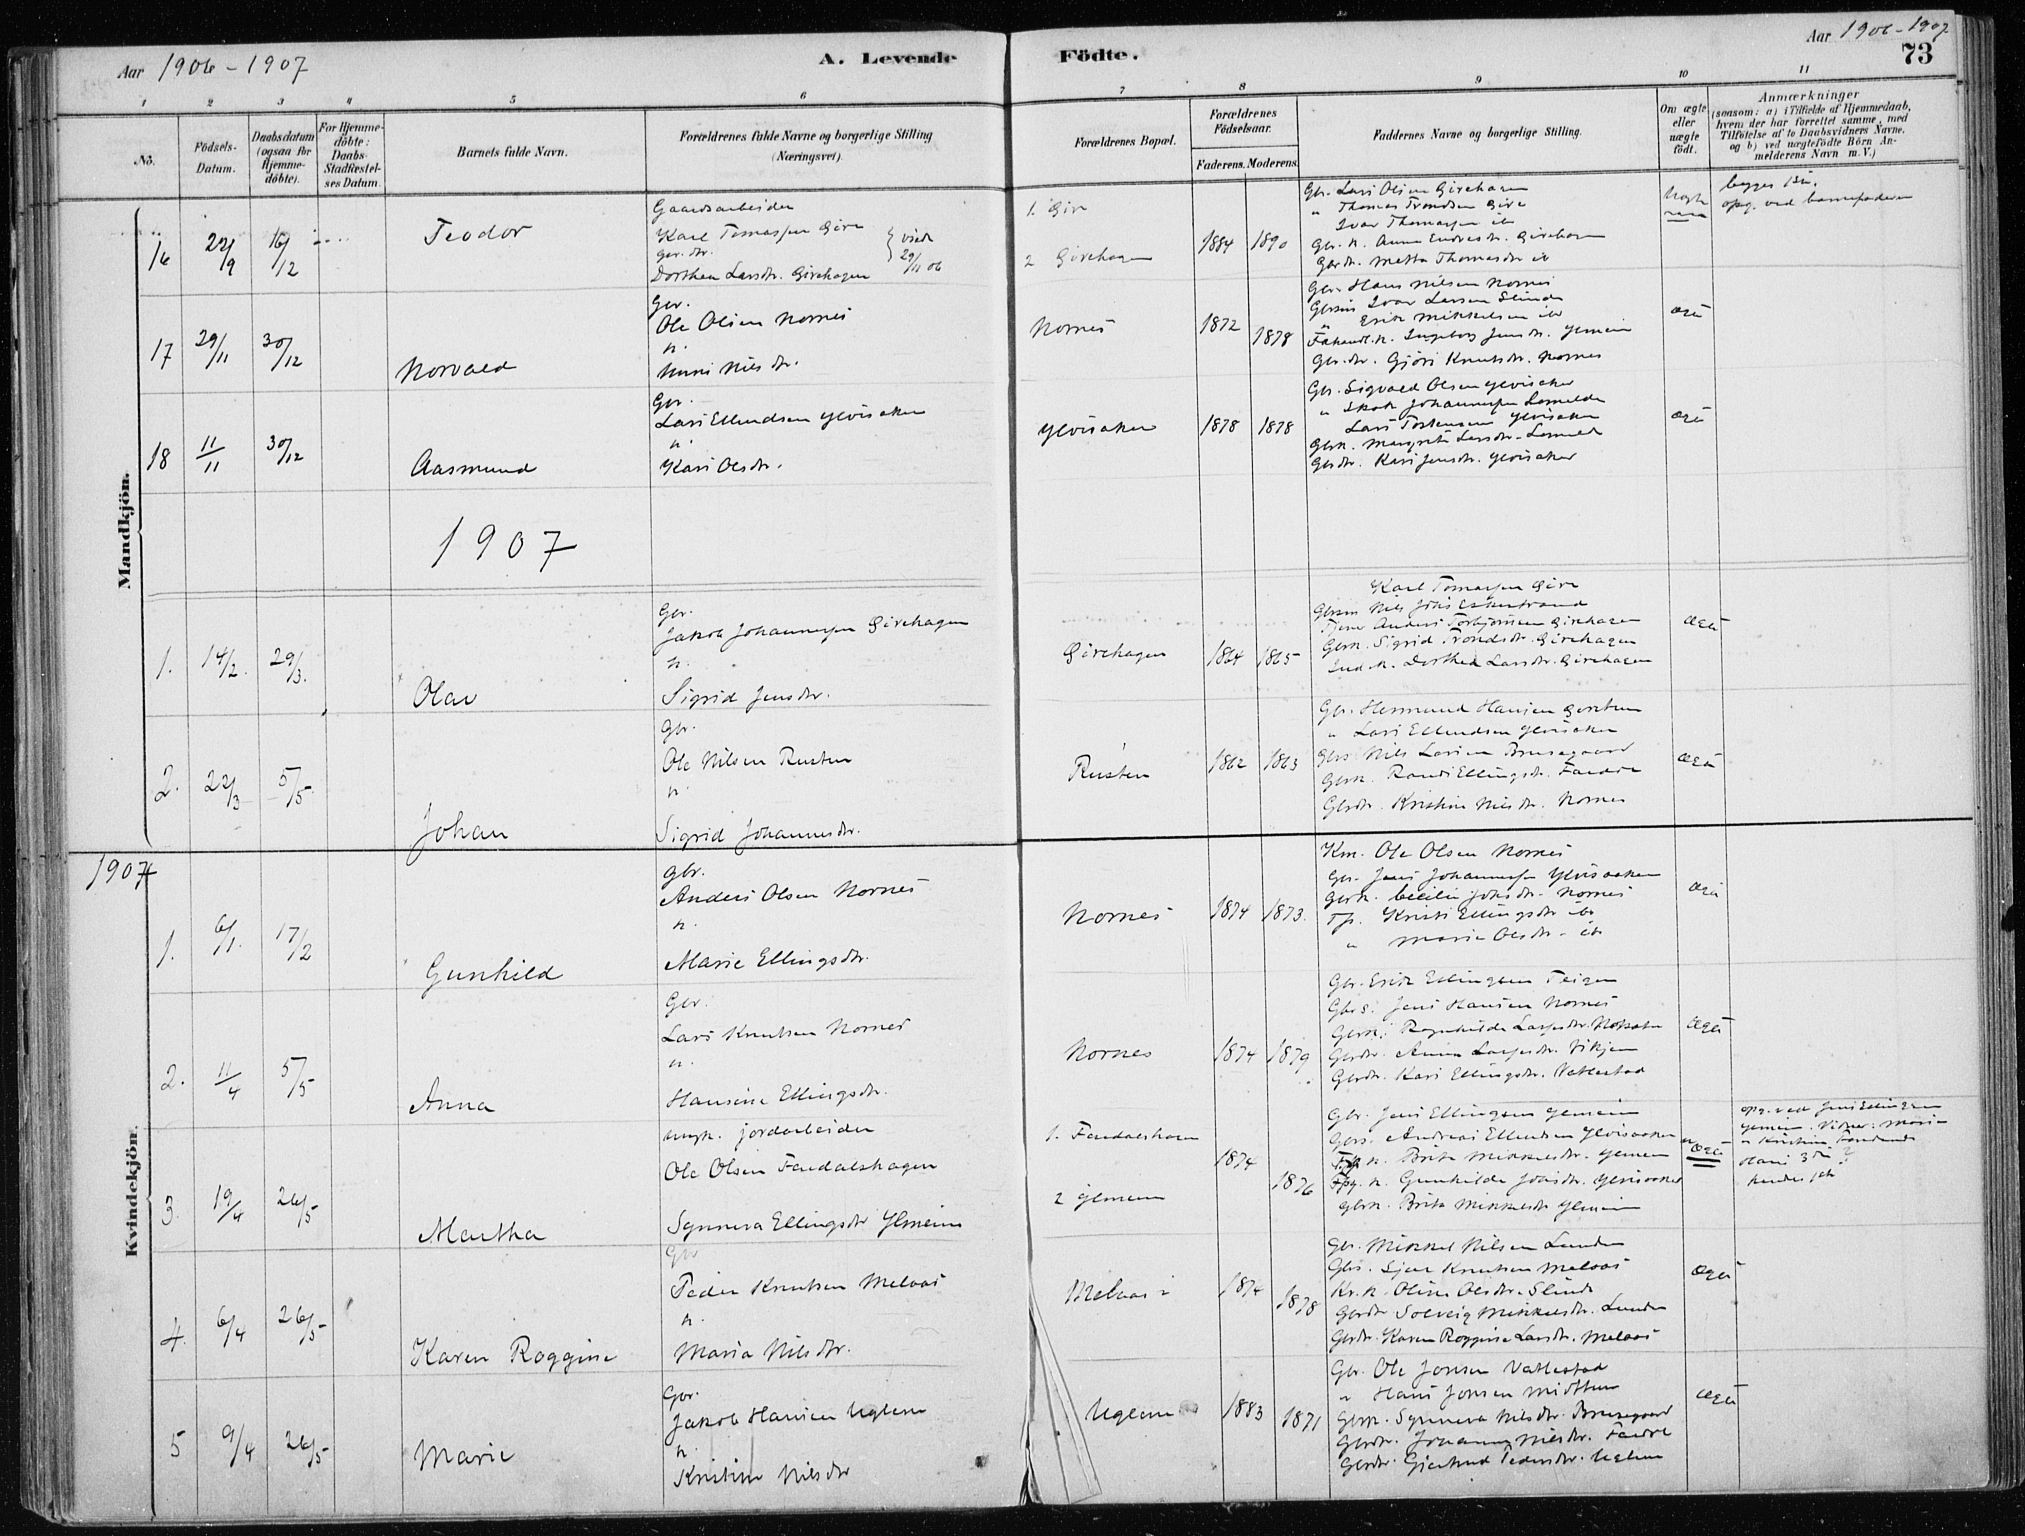 Aar 1906-1907
A. Levende
Födte.
Aar 1906-1907
73
1 2 3 4 5 6 7 8 9 10 11
No.
Födsels-Datum.
Daabsdatum (ogsaa for Hjemme-döbte).
For Hjemme-döbte: Daabs-Stadfæstel-ses Datum.
Barnets fulde Navn.
Forældrenes fulde Navne og borgerlige Stilling (Næringsvei).
Forældrenes Bopæl.
Forældrenes Födselsaar.
Faderens. Moderens.
Faddernes Navne og borgerlige Stilling.
Om ægte eller uægte födt.
Anmærkninger
(saasom: a) i Tilfælde af Hjemmedaab, hvem der har forrettet samme, med Tilföielse af to Daabsvidners Navne, og b) ved uægtefödte Börn An-melderens Navn m. V.)
Mandkjön.
16 22/9 16/12
Teodor
Gaardsarbeider
Karl Tomassen Gire
gbr. dtr.
Dorthea Larsdtr. Girehagen
viede 29/12 06
1. Gire
2 Girehagen
1884 1890
Gbr. Lars Olsen Girehagen
" Thomas Trondsen Gire
Ivar Thomassen ib
Gbr. k. Anna Endresdr. Girehagen
Gbrdr. Metta Thomasdr ib
Uægte
begges 1ste.
opg. ved barnefaderen
17 29/11 30/12
Norvald
Gbr.
Ole Olsen Nornes
k.
Unni Nilsdr.
Nornes
1872 1878
Gbr. Hans Nilsen Nornes
Gbrsøn Ivar Larsen Slinde
" Erik Mikkelsen ib
Gbr. dr. Gjöri Knutsdr. Nornes
18 11/11 30/12
Aasmund
Gbr.
Lars Ellendsen Ylvisaker
k.
Kari Olsdr.
Ylvisaker
1878 1878
Gbr. Sigvald Olsen Ylvisaker
Lars Torstensen Ylvisaker
Gbrdr. Kari Jensdr. Ylvisaker
1907
1. 14/2. 29/3.
Olav
Gbr.
Jakob Johannessen Girehagen
k.
Sigrid Jensdr.
Girehagen
1864 1865
Karl Tomassen Gire
Tjener Anders Torbjörnsen Girehagen
Gbrk. Sigrid Trondsdr. Girehagen
Ind. k. Dorthea Larsdr. Girehagen
ægte
2. 22/3 5/5
Johan
Gbr.
Ole Nilsen Rusten
k.
Sigrid Johannesdr.
Rusten
1862 1863
Gbr. Hermund Hansen
" Lars Ellendsen Ylvisaker
Gbrs. Nils Larsen Brusegaard
Gbrk. Randi Ellingsdr. Fardal
Gbrdr. Kristine Nilsdr. Nornes
ægte
Kvindekjön.
1907
1. 6/1. 17/2
Gunhild
gbr.
Anders Olsen Nornes
k.
Marie Ellingsdr.
Nornes
1874 1873.
Km. Ole Olsen Nornes
Gbr. Jens Johannessen Ylvisaker
Gbrk. Cecilie Johsdr. Nornes
Tp. Kristi Ellingsdtr ib
" Marie Olsdr. ib
ægte
2. 11/4 5/5
Anna
Gbr.
Lars Knutsen Nornes
k.
Hansine Ellingsdr.
Nornes
1874 1879
Gbr. Erik Ellingsen Teigen
Gbrs. Jens Hansen Nornes
Gbrdr. Anna Lassesdr. Vikjen
Gbrdr. Kari Ellingsdr. Vatlestad
ægte
3. 19/4 26/5
Martha
ungk. jordarbeider
Ole Olsen Fardalshagen
Synneva Ellingsdr Ylmeim
1. Fardalshagen
2 Ylmeim
1874
1876
Gbr. Jens Ellingsen Ylmeim
Gbrs. Andreas Ellendsen Ylvisaker
k. Brita Mikkelsdr. Ylmeim
k. Gunhilde Johsdr. Ylvisaker
Gbrk. Brita Mikkelsdr Ylmeim
uægte
opg. ved Jens Ellingsen Ylmeim.
4. 6/4 26/5
Karen Roggine
Gbr
Peder Knutsen Melaas
k.
Maria Nilsdtr.
Melaas
1874
1878
Gbr. Mikkel Nilsen Lunden
Gbs. Sjur Knutsen Melaas
Kr. k. Oline Olsdr. Slinde
Gbrdr Solveig Mikkelsdr. Lunden
Gbrdr. Karen Roggine Larsdr. Melaas
ægte
5 9/4 26/5
Marie
Gbr.
Jakob Hansen Uglum
k.
Kristine Nilsdr
Uglum
1883 1871
Gbr. Ole Jonsen Vatlestad
" Hans Jonsen Midttun
Gbrk. Synneva Nilsdtr. Brusegaard
Gbrdr. Johanna Nilsdr. Fardal
Gbrdr. Gjertrud Pedersdr. Uglum
ægte